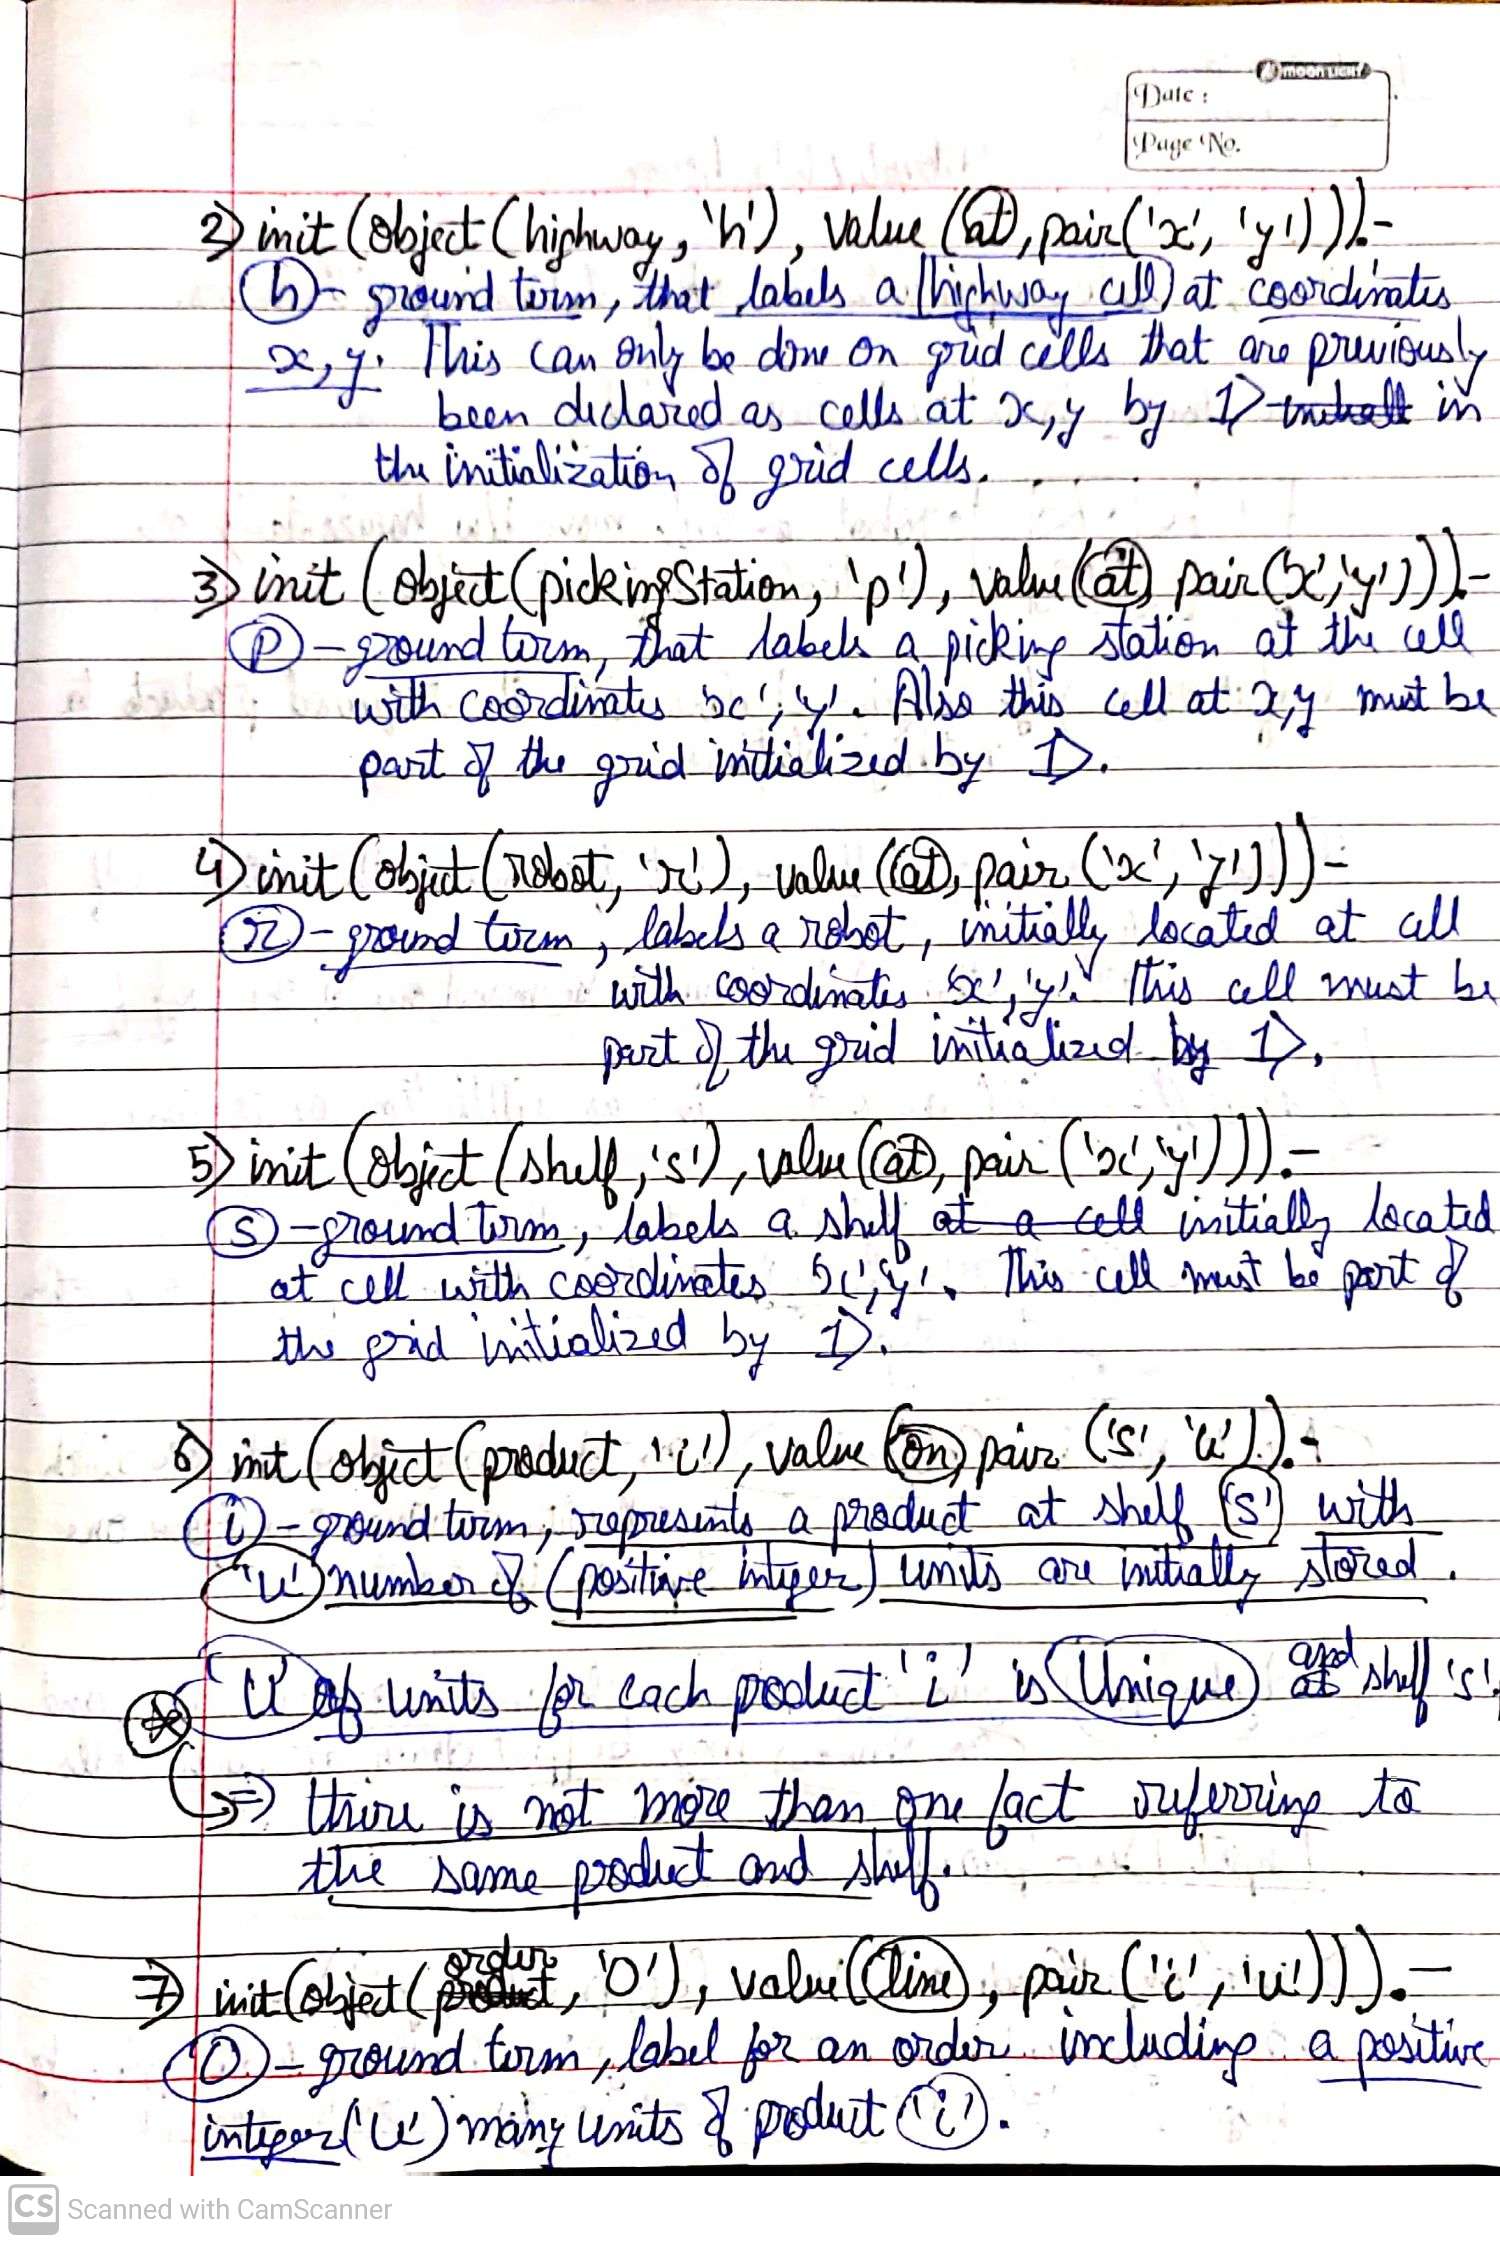 MOON LIGHT
Date :
Page No.
2) init (object (highway, 'h'), value (at, pair('x', 'y'))).-
h - ground term, that labels a highway cell at coordinates
x, y. This can only be done on grid cells that are previously
been declared as cells at x, y by 1) in
the initialization of grid cells.
3) init (object (pickingStation, 'p'), value (at, pair ('x', 'y'))).-
p - ground term, that labels a picking station at the cell
with coordinates 'x', 'y'. Also this cell at x, y must be
part of the grid initialized by 1).
4) init (object (robot, 'r'), value (at, pair ('x', 'y'))) -
r - ground term, labels a robot, initially located at cell
with coordinates 'x', 'y'. This cell must be
part of the grid initialized by 1).
5) init (object (shelf, 's'), value (at, pair ('x', 'y'))).-
s - ground term, labels a shelf at a cell initially located
at cell with coordinates 'x', 'y'. This cell must be part of
the grid initialized by 1).
6) init (object (product, 'i'), value (on, pair ('s', 'u')).-
i - ground term, represents a product at shelf 's' with
'u' number of (positive integer) units are initially stored.
'U' of units for each product 'i' is Unique and shelf 's'.
=> there is not more than one fact referring to
the same product and shelf.
7) init (object (order, 'O'), value (line, pair ('i', 'u'))).-
O - ground term, label for an order including a positive
integer ('u') many units of product 'i'.
CS Scanned with CamScanner